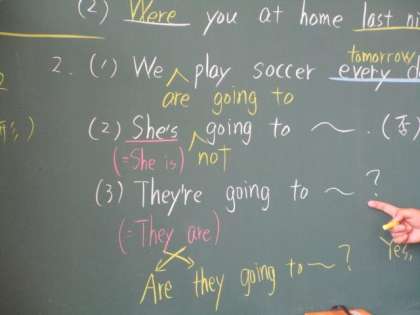 (2) Were you at home last
tomorrow
2. (1) We play soccer every
are going to
(2) She's going to ～. (否)
(=She is) not
(3) They're going to ～?
(=They are)
Are they going to ～? Yes,